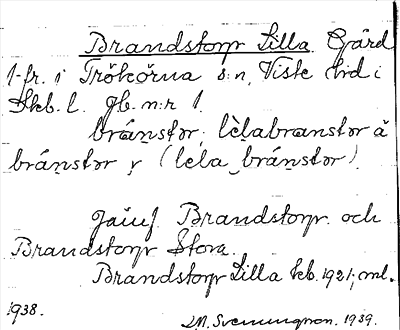 Brandstorp Lilla Gård
1-fr. i Trökörna s:n, Viste hd i
Skb. l. Jb. n:r 1.
bránstɘr; lèlabranstɘr å
bránstɘr, (lela bránstɘr).
Jämf. Brandstorp och
Brandstorp Stora.
Brandstorp Lilla tkb. 1921; ml.
1938.
J.M. Svenungson. 1939.